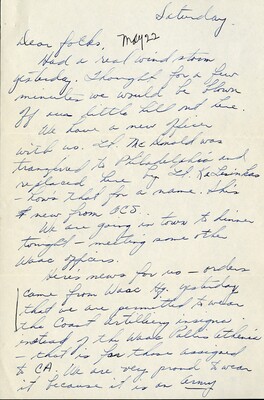 Saturday.
Dear folks, May 22
Had a real wind storm
yesterday. Thought for a few
minutes we would be blown
off our little hill out here.
We have a new officer
with us. Lt. McDonald was
transferred to Philadelphia and
replaced here by Lt.
- hows that for a name. She's
new from OCS.
We are going in town to dinner
tonight - meeting some other
Waac officers.
Here's news for us - orders
came from Waac Hq. yesterday
that we are permitted to wear
the Coast Artillery insignia
instead of the Waac Pallas Athena
- that is for those assigned
to CA. We are very proud to wear
it because it is an Army